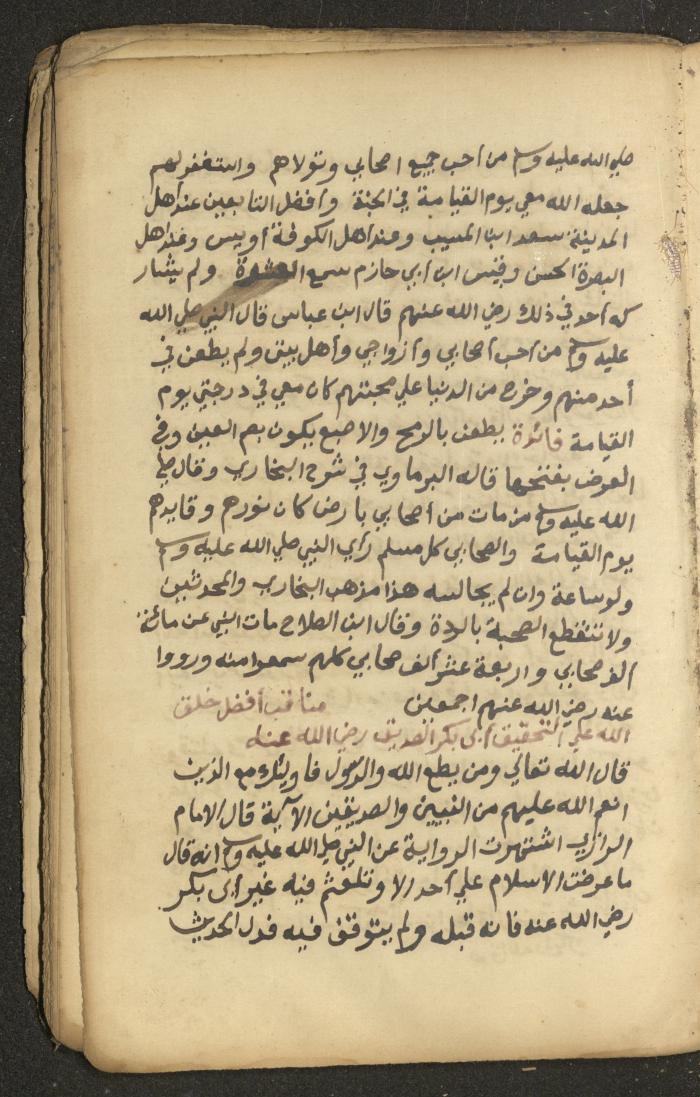 صلي الله عليه وسلم من أحب جميع اصحابي وتولاهم واستغفر لهم
جعله الله معي يوم القيامة في الجنة وأفضل التابعين عند أهل
المدينة سعد ابن المسيب وعند اهل الكوفة أويس وعند اهل
البصرة الحسن وقيس ابن أبي حازم سمع العشرة ولم يشار
كه أحد في ذلك رضي الله عنهم قال ابن عباس قال النبي صلي الله
عليه وسلم من أحب أصحابي وأزواجي وأهل بيتي ولم يطعن في
أحد منهم وخرج من الدنيا علي محبتهم كان معي في درجتي يوم
القيامة فائدة يطعن بالرمح والاصبع يكون بضم العين وفي
العرض بفتحها قاله البرماوي في شرح البخاري وقال صلي
الله عليه وسلم من مات من أصحابي بارض كان نورهم وقايدهم
يوم القيامة والصحابي كل مسلم رأي النبي صلي الله عليه وسلم
ولو ساعة وان لم يجالسه هذا مذهب البخاري والمحدثين
ولا تنقطع الصحبة بالردة وقال ابن الصلاح مات النبي عن مائة
ألف صحابي واربعة عشر ألف صحابي كلهم سمعوا منه ورووا
عنه رضي الله عنهم اجمعين مناقب أفضل خلق
الله علي التحقيق أبي بكر الصديق رضي الله عنه
قال الله تعالي ومن يطع الله والرسول فاولئك مع الذين
انعم الله عليهم من النبيين والصديقين الآية قال الامام
الرازي اشتهرت الرواية عن النبي صلي الله عليه وسلم انه قال
ما عرضت الاسلام علي أحد الا وتلعثم فيه غير أبي بكر
رضي الله عنه فانه قبله ولم يتوقف فيه فدل الحديث